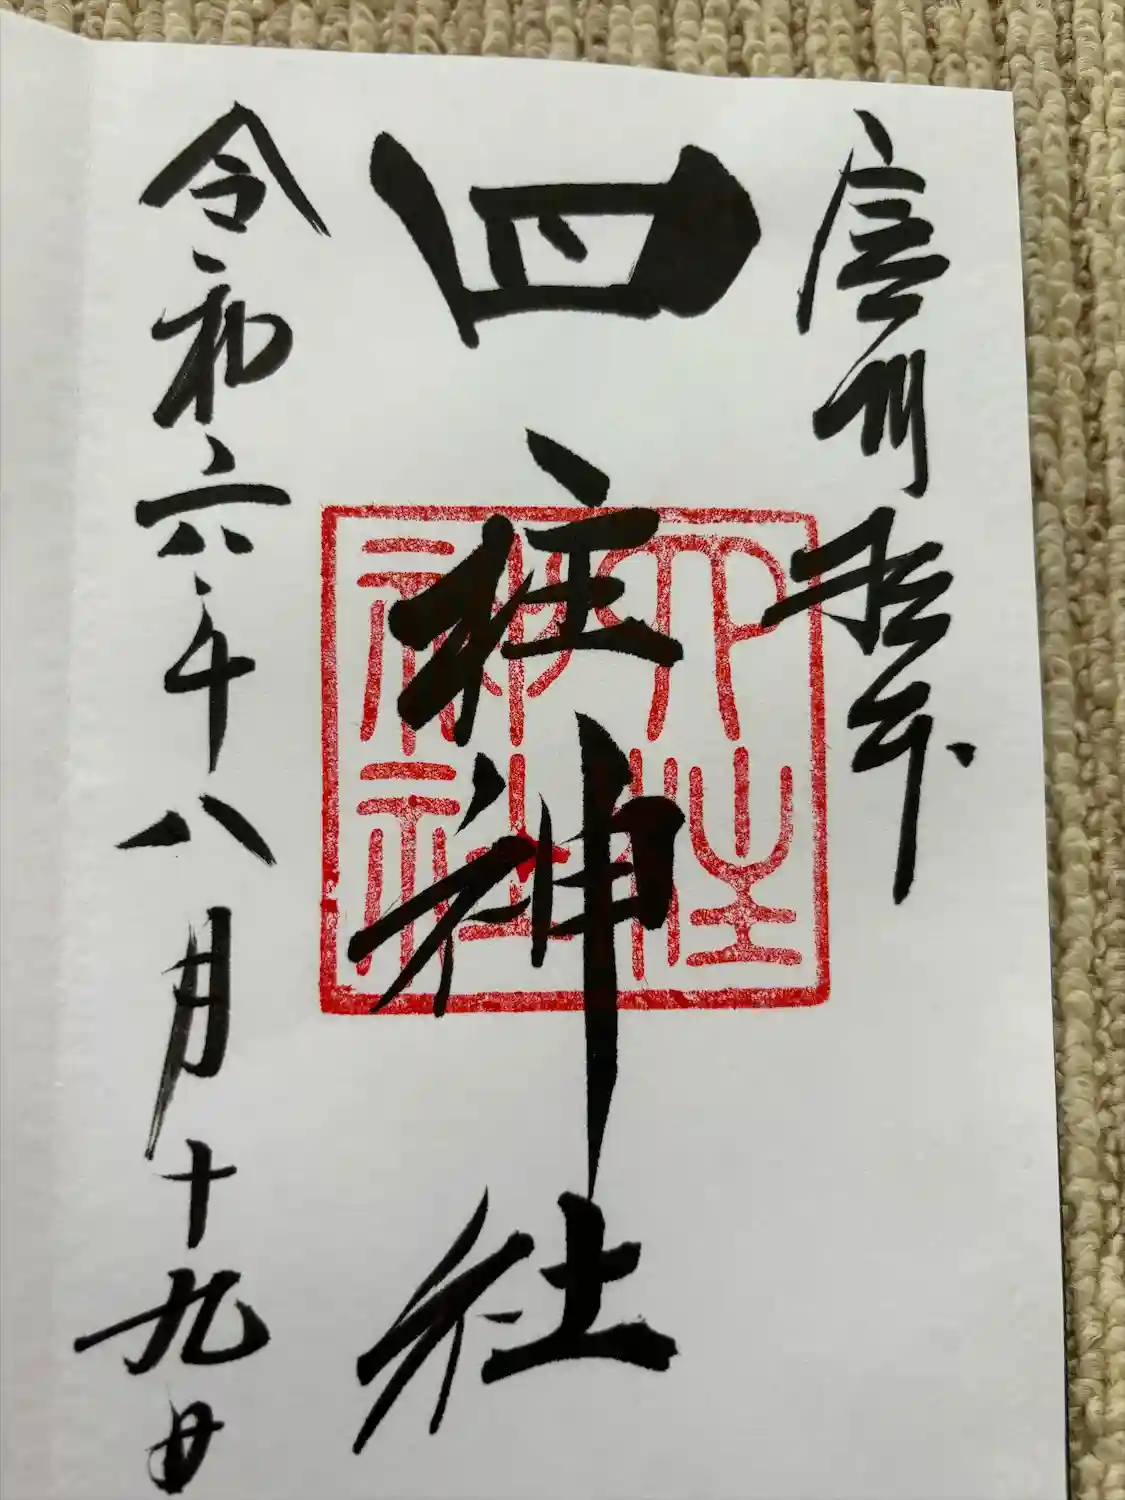 信州松本
四柱神社
四柱
神社
令和六年八月十九日